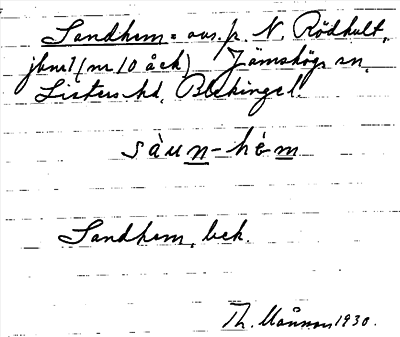 Sandhem = avs. fr. N. Rödhult,
jbnr 1 (nr 10 å ek) Jämshögs sn,
Listers hd, Blekinge l.
sàun-hèm
Sandhem, bek.
Th. Månsson 1930.